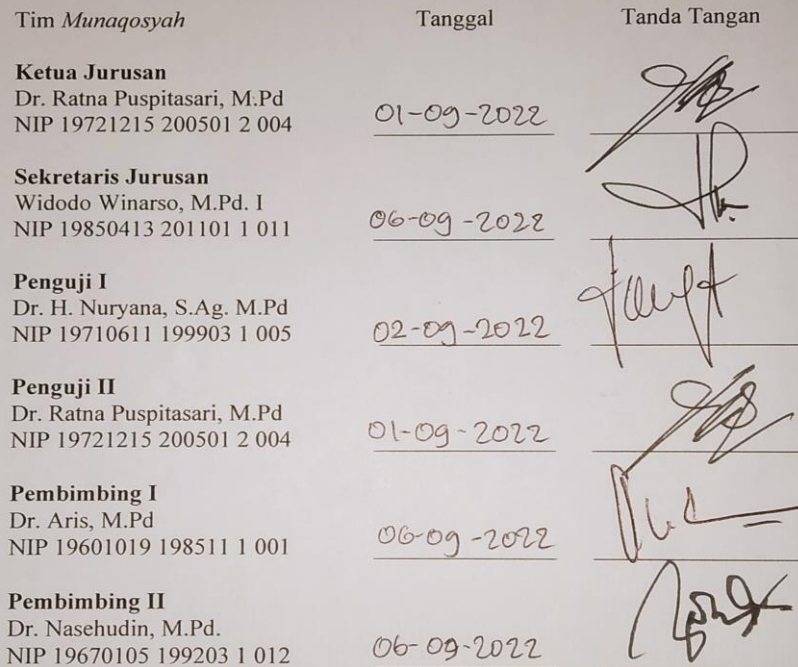 Tim Munaqosyah Tanggal Tanda Tangan
Ketua Jurusan
Dr. Ratna Puspitasari, M.Pd
NIP 19721215 200501 2 004 01-09-2022
Sekretaris Jurusan
Widodo Winarso, M.Pd. I
NIP 19850413 201101 1 011 06-09-2022
Penguji I
Dr. H. Nuryana, S.Ag. M.Pd
NIP 19710611 199903 1 005 02-09-2022
Penguji II
Dr. Ratna Puspitasari, M.Pd
NIP 19721215 200501 2 004 01-09-2022
Pembimbing I
Dr. Aris, M.Pd
NIP 19601019 198511 1 001 06-09-2022
Pembimbing II
Dr. Nasehudin, M.Pd.
NIP 19670105 199203 1 012 06-09-2022